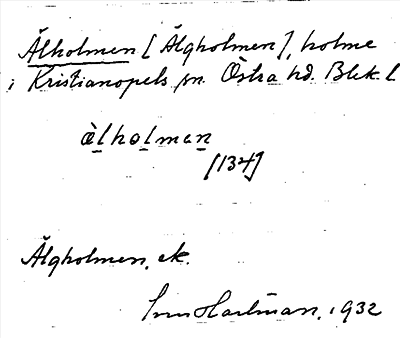 Älholmen [Älgholmen], holme
i Kristianopels sn. Östra hd. Blek. l
ὲlholmen
[134]
Älgholmen, ek.
Sven Hartman, 1932